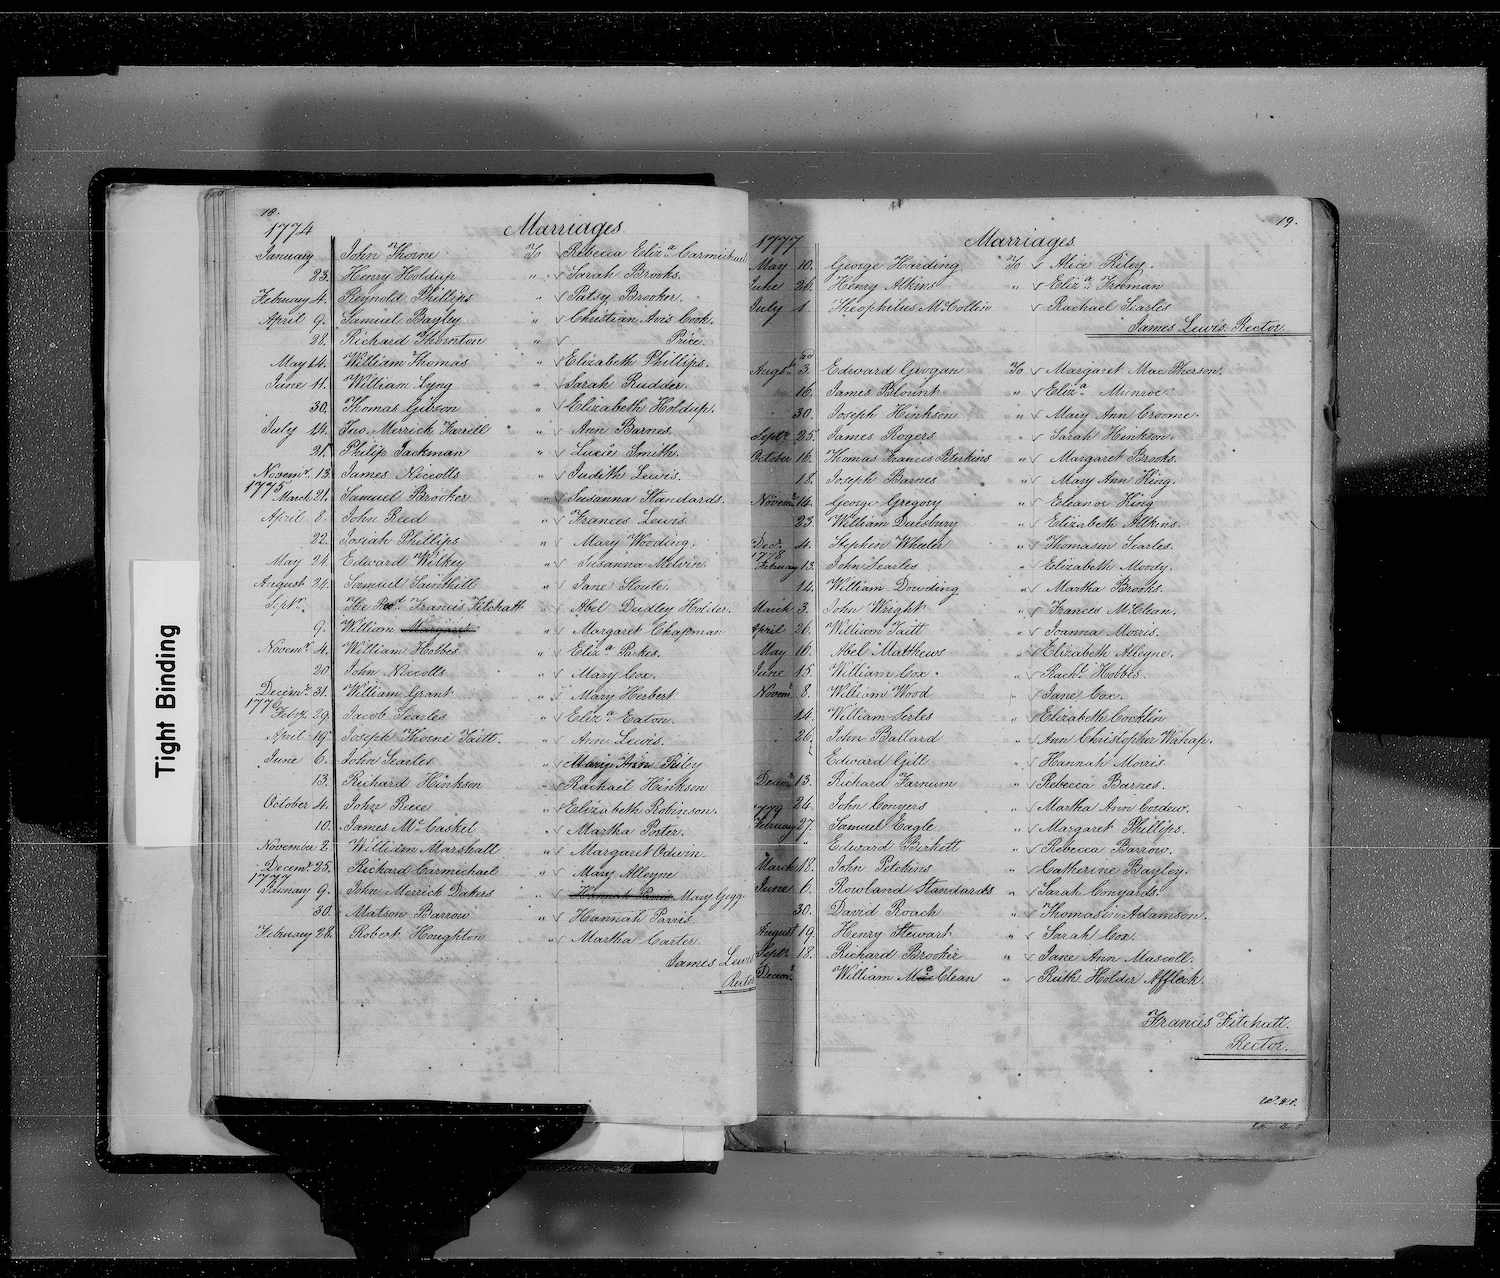 Tight Binding
18.
1774
Marriages
January John Thorne To Rebecca Eliz.a Carmichael
23. Henry Holdup " Sarah Brooks.
February 4. Reynold Phillips " Patsy Brooker.
April 9. Samuel Bayley " Christian Avis Cook.
28. Richard Thornton " Price.
May 14. William Thomas " Elizabeth Phillips.
June 11. William Lyng " Sarah Rudder.
30. Thomas Gibson " Elizabeth Holdup.
July 14. Jno. Merrick Farrell " Ann Barnes.
21. Philip Jackman " Lucie Smith.
Novemr. 13. James Niccolls " Judith Lewis.
1775
March 21. Samuel Brooker " Susanna Standards.
April 8. John Reed " Frances Lewis
22. Josiah Phillips " Mary Wooding.
May 24. Edward Wilkey " Susanna Melvin
August 24. Samuel Sainthill " Jane Stoute.
Septr. The Revd. Francis Fitchatt " Abel Dudley Holder.
9. William Margaret " Margaret Chapman
Novemr. 4. William Hobbes " Eliz.a Parkes.
20 John Niccolls " Mary Cox.
Decemr. 31. William Grant " Mary Herbert
1776
Feby. 29. Jacob Searles " Eliz.a Eaton.
April 19 Joseph Thorne Taitt. " Ann Lewis.
June 6. John Searles " Mary Ann Riley
13. Richard Hinkson " Rachael Hinkson
October 4. John Reece " Elizabeth Robinson.
10. James McCaskel " Martha Porter.
November 2. William Marshall " Margaret Odwin.
Decemr. 25. Richard Carmichael " Mary Alleyne
1777
January 9. John Merrick Dakers " Hannah Parris Mary Gigg.
30. Matson Barrow " Hannah Parris.
February 28. Robert Houghton " Martha Carter.
James Lewis
Rector
19.
1777
Marriages
May 10. George Harding To Alice Riley.
June 26. Henry Atkins " Eliz.a Freeman
July 1. Theophilus McCollin Rachael Searles
James Lewis Rector
Augst. 3. Edward Grogan To Margaret Mac Pherson.
16. James Blount " Eliz.a Munroe
30. Joseph Hinkson " Mary Ann Croome.
Septr. 25. James Rogers " Sarah Hinkson.
October 16. Thomas Francis Peterkins " Margaret Brooks.
18. Joseph Barnes " Mary Ann King.
Novemr. 14. George Gregory " Eleanor King
23. William Dalsbury " Elizabeth Atkins.
Decr. 4. Stephen Wheeler " Thomasin Searles.
1778
February 13. John Searles " Elizabeth Moody.
14. William Dowding " Martha Brooks.
March 3. John Wright " Frances McClean.
April 26. William Taitt " Joanna Morris.
May 16. Abel Matthews " Elizabeth Alleyne.
June 15. William Cox " Rachl. Hobbes.
Novemr. 8. William Wood " Jane Cox.
14. William Serles " Elizabeth Conklin
26. John Ballard " Ann Christopher Wahap.
Edward Gill " Hannah Morris.
Decemr. 13. Richard Farnum " Rebecca Barnes.
24. John Conyers " Martha Ann Cordew.
1779
February 27. Samuel Eagle " Margaret Phillips.
" Edward Birkett " Rebecca Barrow.
March 18. John Pitckins " Catherine Bayley.
June 6. Rowland Standards " Sarah Conyards.
30. David Roach " Thomasin Adamson.
August 19. Henry Stewart " Sarah Cox.
Septr. 18. Richard Brooker " Jane Ann Mascoll.
Decemr. William McClean " Ruth Holder Affleck.
Francis Fitchatt.
Rector.